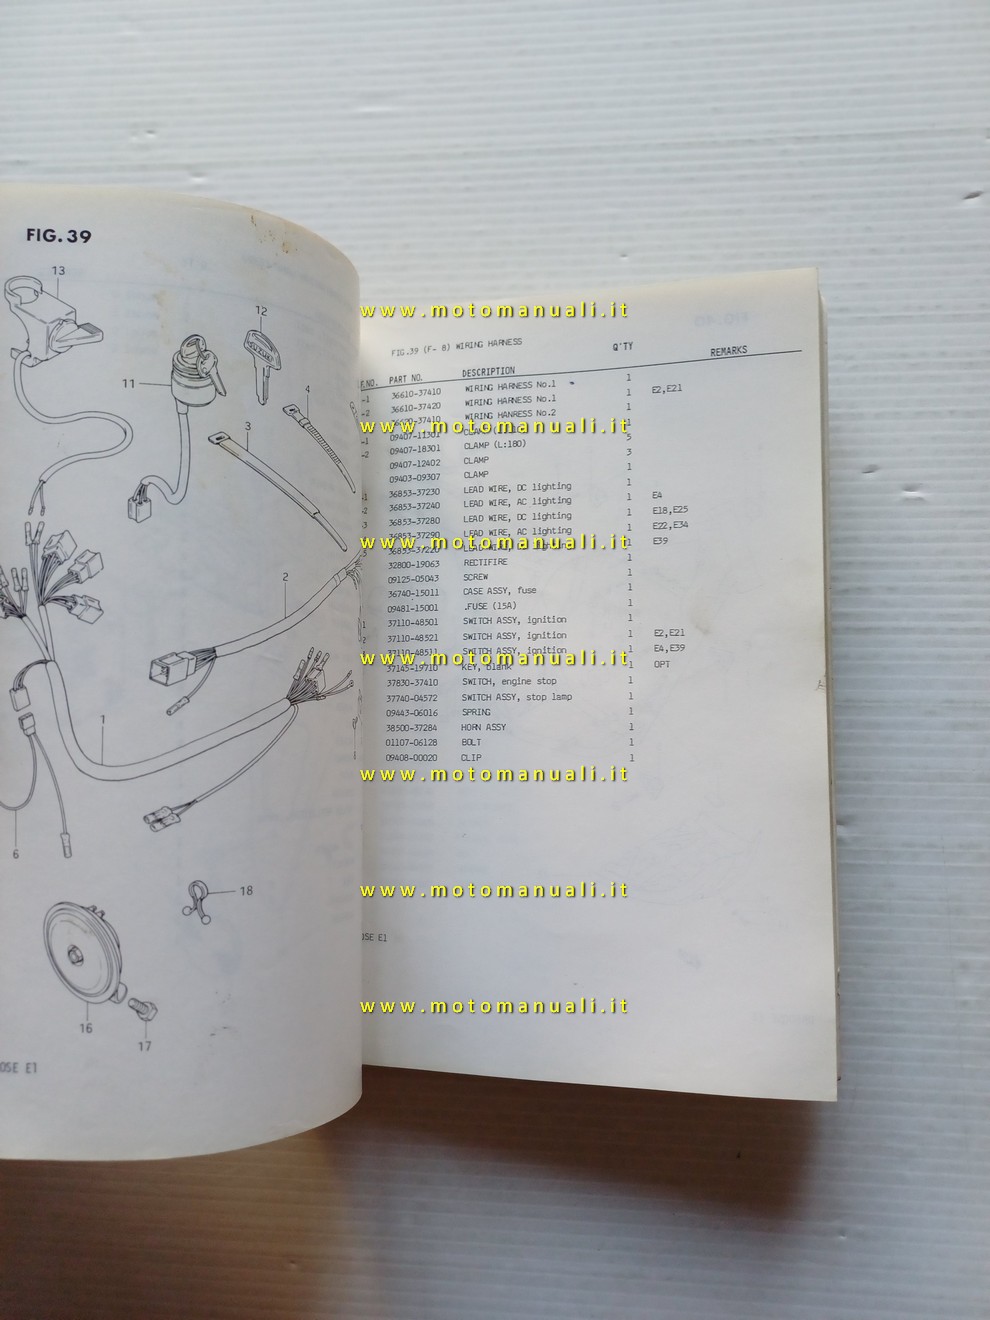 FIG. 39
13
12
11
4
3
2
1
6
18
16
17
OSE E1
www.motomanuali.it
FIG.39 (F- 8) WIRING HARNESS
Q'TY
REMARKS
F.NO. PART NO. DESCRIPTION
-1 36610-37410 WIRING HARNESS No.1 1
-2 36610-37420 WIRING HARNESS No.1 1 E2,E21
36620-37410 WIRING HANRESS No.2 1
www.motomanuali.it
-1 09407-11301 CLAMP 1
-2 09407-18301 CLAMP (L:180) 5
09407-12402 CLAMP 3
09403-09307 CLAMP 1
-1 36853-37230 LEAD WIRE, DC lighting 1
-2 36853-37240 LEAD WIRE, AC lighting 1 E4
-3 36853-37280 LEAD WIRE, DC lighting 1 E18,E25
36853-37290 LEAD WIRE, AC lighting 1 E22,E34
www.motomanuali.it
36853-37220 LEAD WIRE, lighting 1 E39
32800-19063 RECTIFIRE 1
09125-05043 SCREW 1
36740-15011 CASE ASSY, fuse 1
09481-15001 .FUSE (15A) 1
1 37110-48501 SWITCH ASSY, ignition 1
2 37110-48521 SWITCH ASSY, ignition 1 E2,E21
37110-48511 SWITCH ASSY, ignition 1 E4,E39
www.motomanuali.it
37145-19710 KEY, blank 1 OPT
37830-37410 SWITCH, engine stop 1
37740-04572 SWITCH ASSY, stop lamp 1
09443-06016 SPRING 1
38500-37284 HORN ASSY 1
01107-06128 BOLT 1
09408-00020 CLIP 1
www.motomanuali.it
www.motomanuali.it
OSE E1
www.motomanuali.it